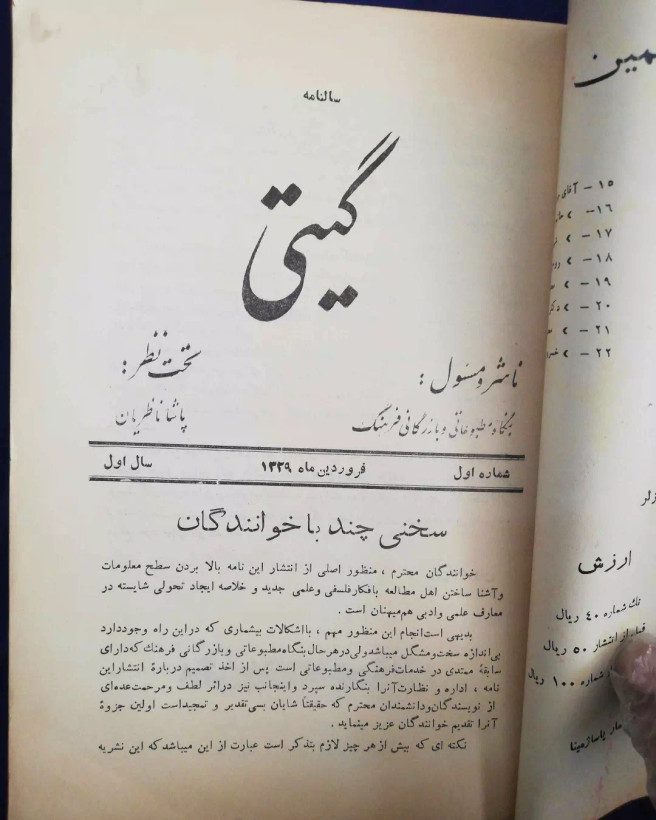 سالنامه
گیتی
ناشر و مسئول :
بنگاه مطبوعاتی و بازرگانی فرهنگ
تحت نظر :
پاشا ناظریان
شماره اول
فروردین ماه ۱۳۲۹
سال اول
سخنی چند با خوانندگان
خوانندگان محترم ، منظور اصلی از انتشار این نامه بالا بردن سطح معلومات
و آشنا ساختن اهل مطالعه بافکار فلسفی وعلمی جدید و خلاصه ایجاد تحولی شایسته در
معارف علمی وادبی هم‌میهنان است .
بدیهی است انجام این منظور مهم ، بااشکالات بیشماری که دراین راه وجوددارد
بی‌اندازه سخت‌ومشگل میباشدولی‌درهرحال‌بنگاه‌مطبوعاتی وبازرگانی فرهنك که‌دارای
سابقهٔ ممتدی در خدمات‌فرهنگی ومطبوعاتی است پس از اخذ تصمیم دربارهٔ انتشاراین
نامه ، اداره و نظارت‌آنرا بنگارنده سپرد واینجانب نیز دراثر لطف ومرحمت‌عده‌ای
از نویسندگان‌ودانشمندان محترم که حقیقتاً شایان بسی‌تقدیر و تمجیداست اولین جزوهٔ
آنرا تقدیم خوانندگان عزیز مینماید .
نکته ای که بیش از هر چیز لازم بتذکر است عبارت از این میباشدکه این نشریه
۱۵ – آقای
۱۶ –
۱۷ –
۱۸ –
۱۹ –
۲۰ –
۲۱ –
۲۲ –
ارزش
تك شماره ۴۰ ریال
قبل از انتشار ۵۰ ریال
شماره ۱۰۰ ریال
پاساژ مینا